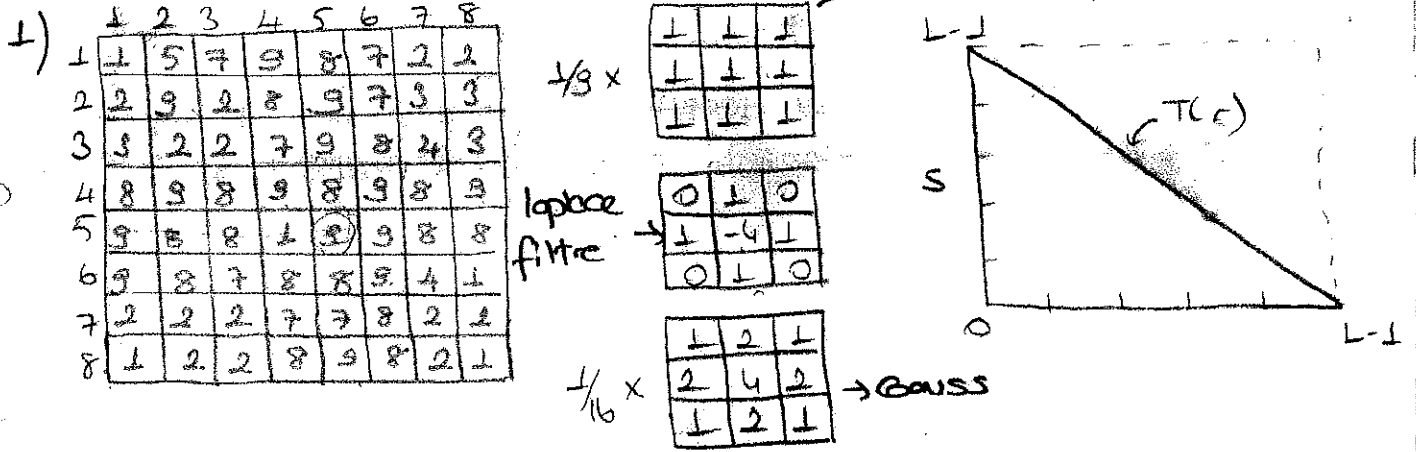 1)
1 2 3 4 5 6 7 8
1 1 5 7 9 8 7 2 2
2 2 9 2 8 9 7 3 3
3 3 2 2 7 9 8 4 3
4 8 9 8 9 8 9 8 9
5 9 8 8 1 9 9 8 8
6 9 8 7 8 8 9 4 1
7 2 2 2 7 7 8 2 2
8 1 2 2 8 9 8 2 1
1/9 x
1 1 1
1 1 1
1 1 1
laplace
filtre →
0 1 0
1 -4 1
0 1 0
1/16 x
1 2 1
2 4 2
1 2 1
→ Gauss
L-1
T(r)
S
0
L-1